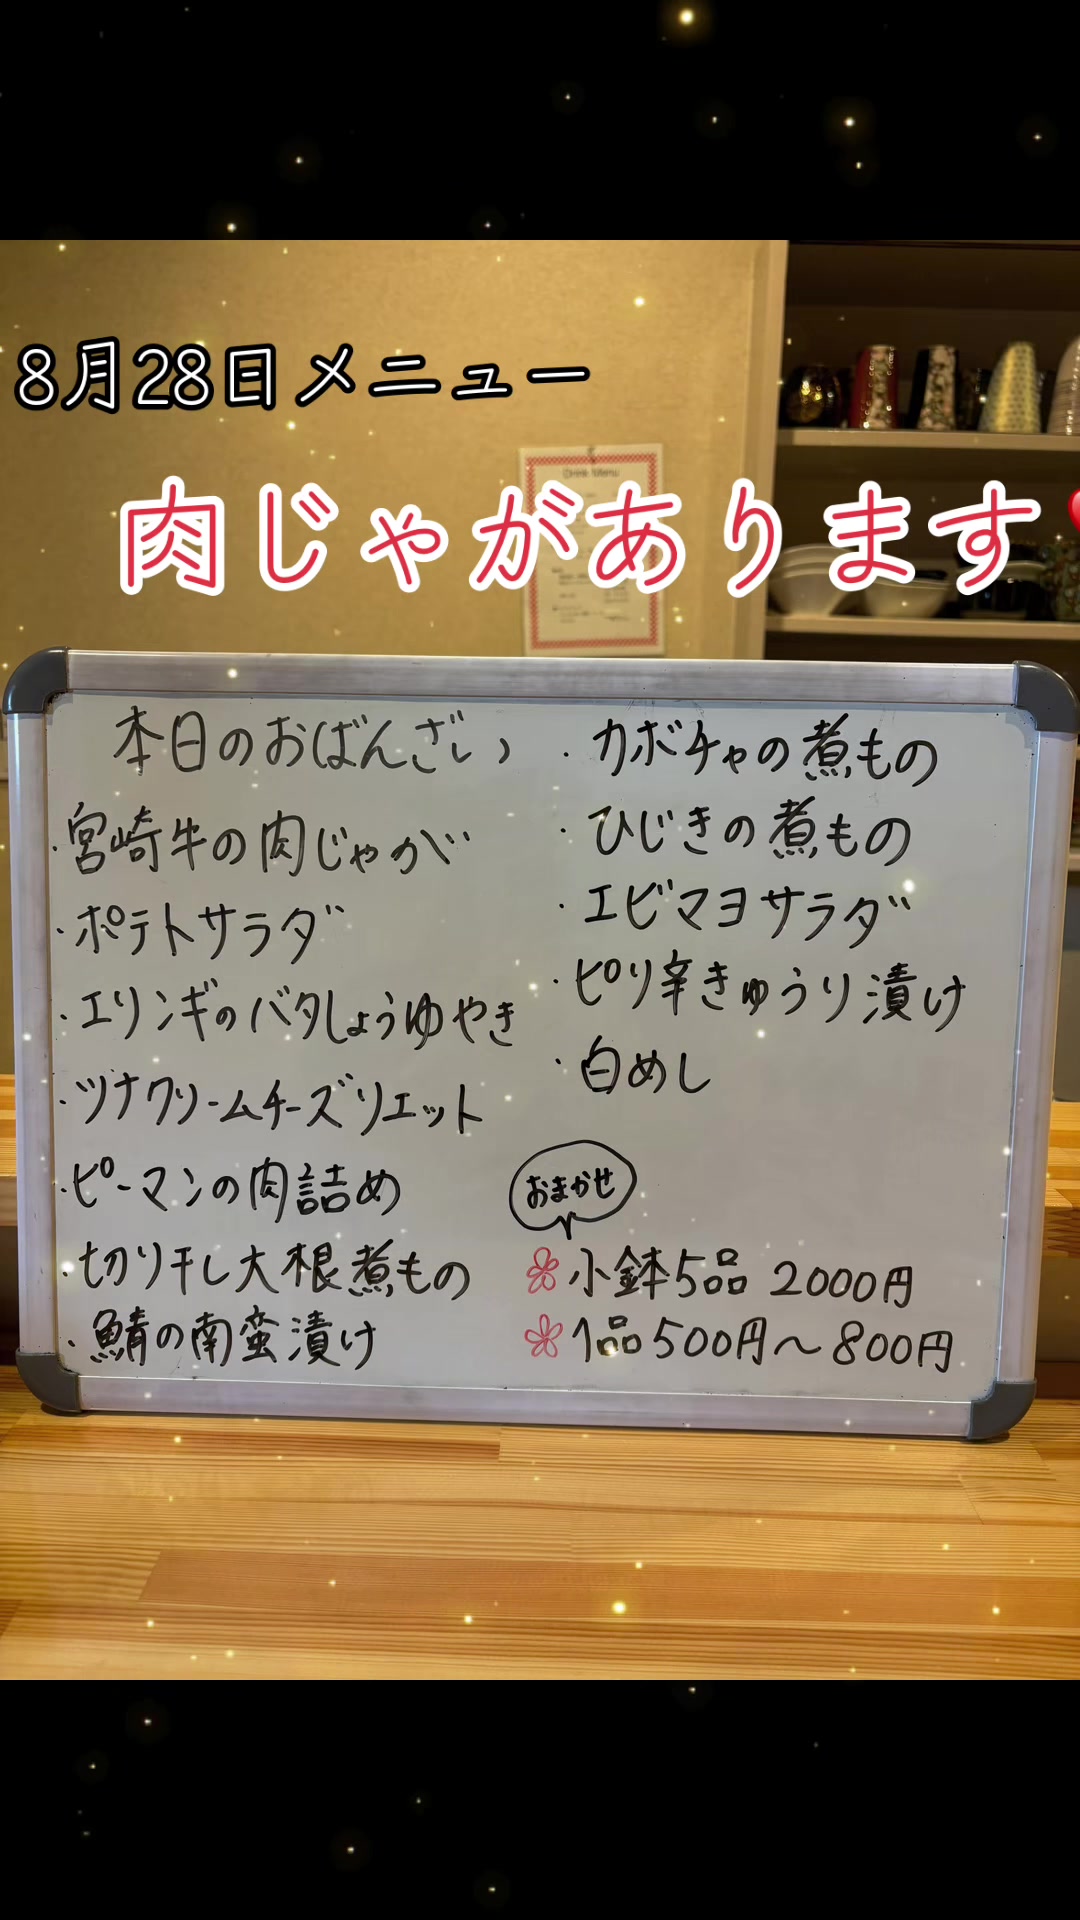 8月28日メニュー
肉じゃがあります
Drink Menu
本日のおばんざい
・宮崎牛の肉じゃが
・ポテトサラダ
・エリンギのバタしょうゆやき
・ツナクリームチーズリエット
・ピーマンの肉詰め
・切り干し大根煮もの
・鯖の南蛮漬け
・カボチャの煮もの
・ひじきの煮もの
・エビマヨサラダ
・ピリ辛きゅうり漬け
・白めし
おまかせ
小鉢5品 2000円
1品500円〜800円